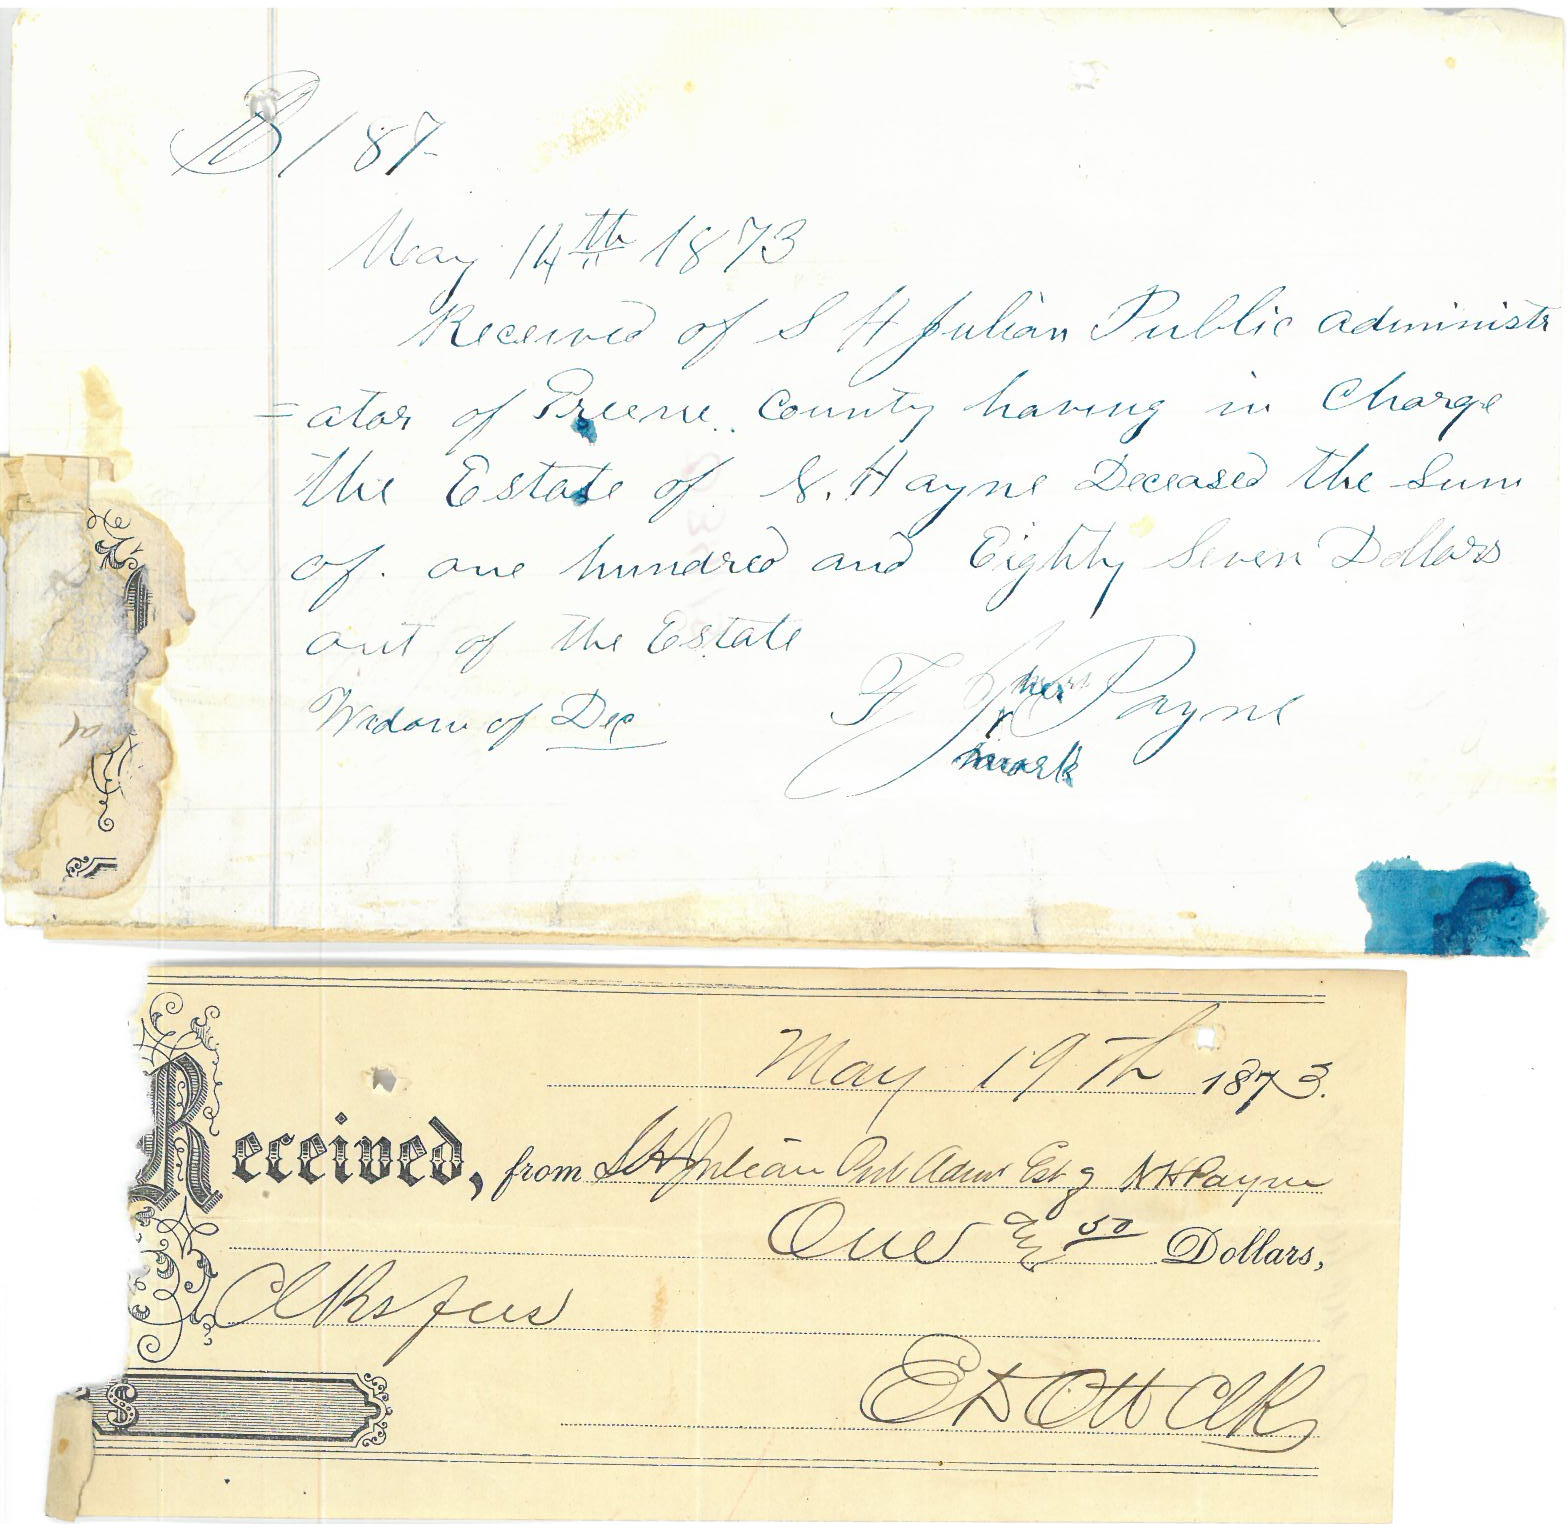 $187-
May 14th 1873
Received of S H Julian Public administr
=ator of Greene County having in Charge
the Estate of N. Hayne Deceased the Sum
of. one hundred and Eighty Seven Dollars
out of the Estate
Widow of Dec
F J Payne
her
mark
May 19Th 1873.
Received, from S H Julian Pub Admr Est of N H Payne
One & 50 Dollars,
Clks fees
$
E D Ott Clk